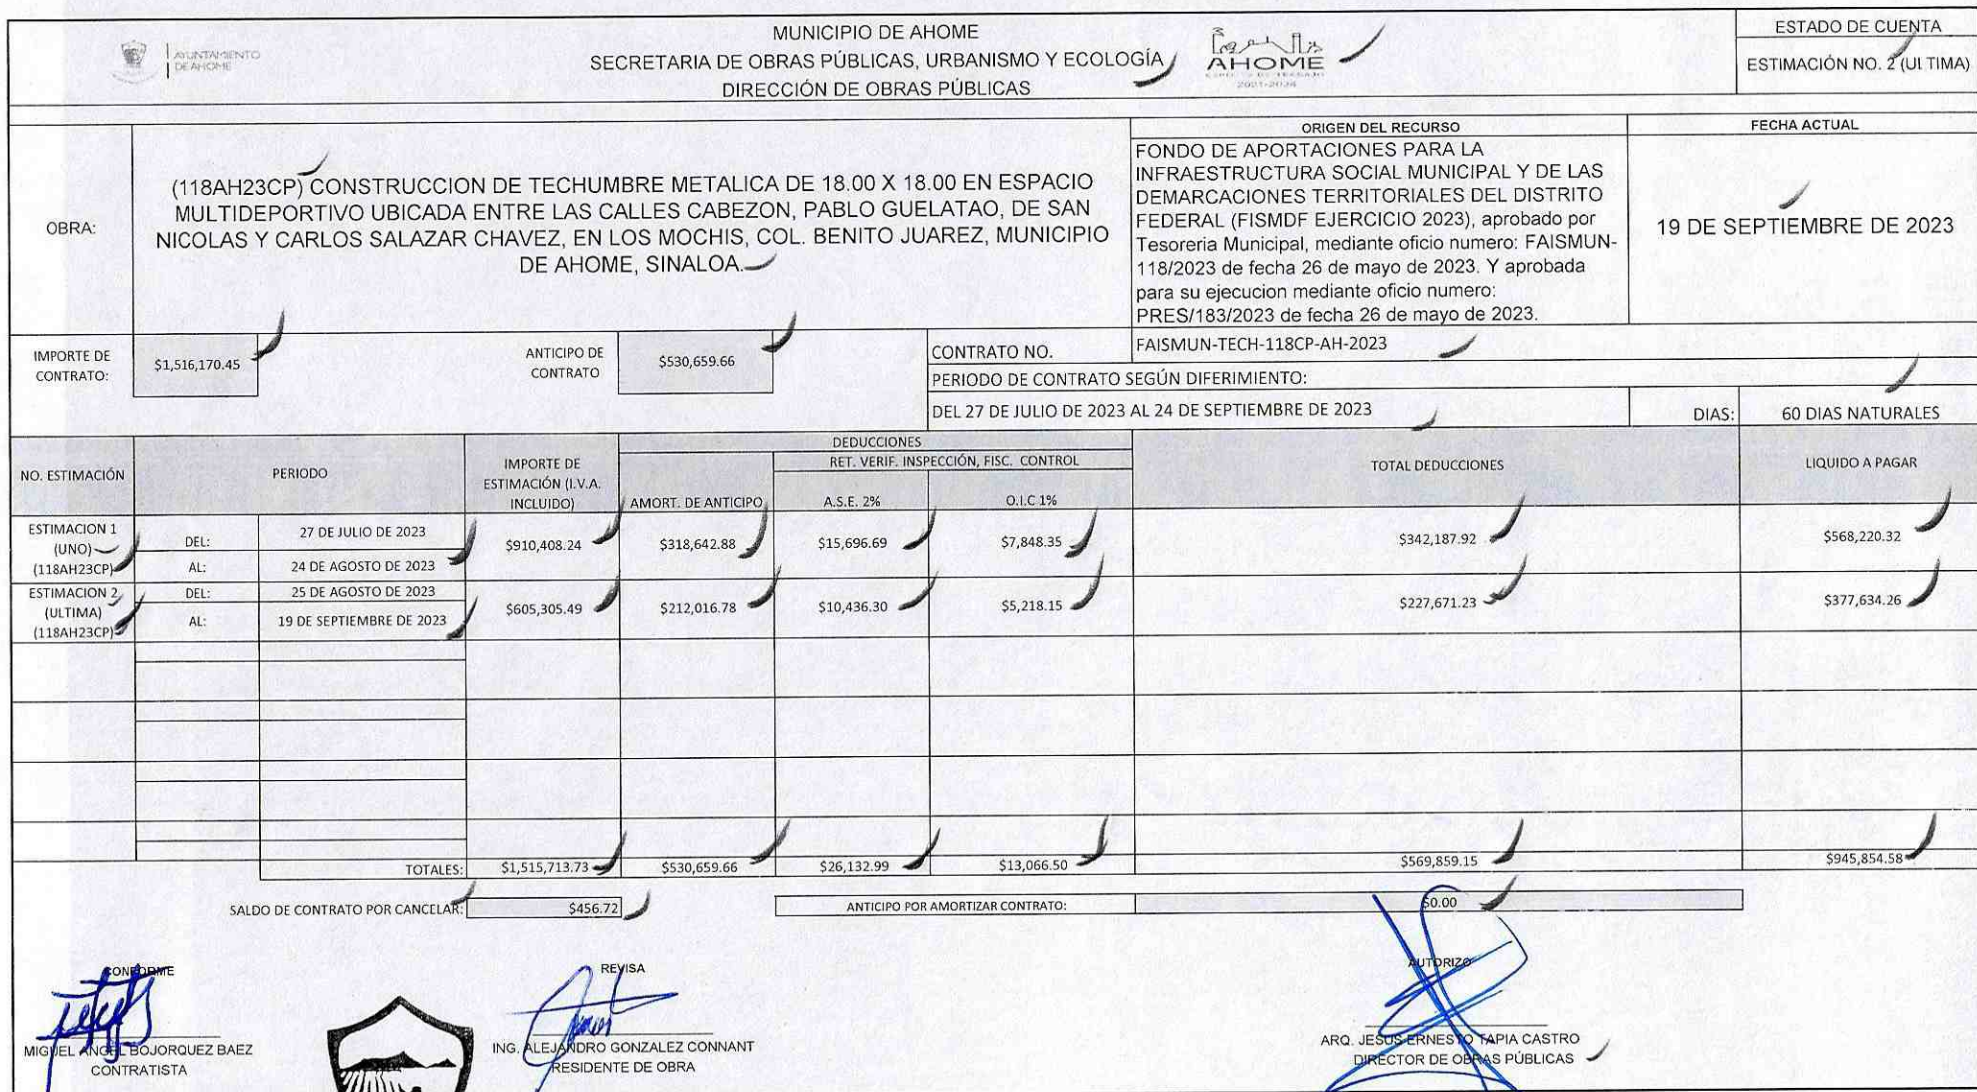 AYUNTAMIENTO
DE AHOME
MUNICIPIO DE AHOME
SECRETARIA DE OBRAS PÚBLICAS, URBANISMO Y ECOLOGÍA
DIRECCIÓN DE OBRAS PÚBLICAS
AHOME
2021-2024
ESTADO DE CUENTA
ESTIMACIÓN NO. 2 (ULTIMA)
OBRA:
(118AH23CP) CONSTRUCCION DE TECHUMBRE METALICA DE 18.00 X 18.00 EN ESPACIO
MULTIDEPORTIVO UBICADA ENTRE LAS CALLES CABEZON, PABLO GUELATAO, DE SAN
NICOLAS Y CARLOS SALAZAR CHAVEZ, EN LOS MOCHIS, COL. BENITO JUAREZ, MUNICIPIO
DE AHOME, SINALOA.
ORIGEN DEL RECURSO
FONDO DE APORTACIONES PARA LA
INFRAESTRUCTURA SOCIAL MUNICIPAL Y DE LAS
DEMARCACIONES TERRITORIALES DEL DISTRITO
FEDERAL (FISMDF EJERCICIO 2023), aprobado por
Tesoreria Municipal, mediante oficio numero: FAISMUN-
118/2023 de fecha 26 de mayo de 2023. Y aprobada
para su ejecucion mediante oficio numero:
PRES/183/2023 de fecha 26 de mayo de 2023.
FECHA ACTUAL
19 DE SEPTIEMBRE DE 2023
IMPORTE DE
CONTRATO:
$1,516,170.45
ANTICIPO DE
CONTRATO
$530,659.66
CONTRATO NO.
FAISMUN-TECH-118CP-AH-2023
PERIODO DE CONTRATO SEGÚN DIFERIMIENTO:
DEL 27 DE JULIO DE 2023 AL 24 DE SEPTIEMBRE DE 2023
DIAS:
60 DIAS NATURALES
NO. ESTIMACIÓN
PERIODO
IMPORTE DE
ESTIMACIÓN (I.V.A.
INCLUIDO)
DEDUCCIONES
AMORT. DE ANTICIPO
RET. VERIF. INSPECCIÓN, FISC. CONTROL
A.S.E. 2%
O.I.C 1%
TOTAL DEDUCCIONES
LIQUIDO A PAGAR
ESTIMACION 1
(UNO)
(118AH23CP)
DEL:
27 DE JULIO DE 2023
AL:
24 DE AGOSTO DE 2023
$910,408.24
$318,642.88
$15,696.69
$7,848.35
$342,187.92
$568,220.32
ESTIMACION 2
(ULTIMA)
(118AH23CP)
DEL:
25 DE AGOSTO DE 2023
AL:
19 DE SEPTIEMBRE DE 2023
$605,305.49
$212,016.78
$10,436.30
$5,218.15
$227,671.23
$377,634.26
TOTALES:
$1,515,713.73
$530,659.66
$26,132.99
$13,066.50
$569,859.15
$945,854.58
SALDO DE CONTRATO POR CANCELAR:
$456.72
ANTICIPO POR AMORTIZAR CONTRATO:
$0.00
CONFORME
MIGUEL ANGEL BOJORQUEZ BAEZ
CONTRATISTA
REVISA
ING. ALEJANDRO GONZALEZ CONNANT
RESIDENTE DE OBRA
AUTORIZO
ARQ. JESUS ERNESTO TAPIA CASTRO
DIRECTOR DE OBRAS PÚBLICAS